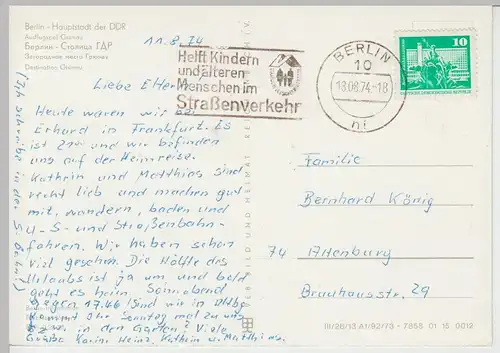 Berlin - Hauptstadt der DDR
Ausflugsziel Grünau
Берлин - Столица ГДР
11.8.74
Liebe Eltern!
Heute waren wir bei
Erhard in Frankfurt. Es
ist 21 und wir befinden
uns auf der Heimreise.
Kathrin und Matthias sind
recht lieb und machen gut
mit, wandern, baden und
U-S- und Straßenbahn-
fahren. Wir haben schon
viel gesehen. Die Hälfte des
Urlaubs ist ja um und bald
geht es heim. Sonnabend
gegen 17.46 sind wir in Altbg.
Kommt Ihr Sonntag mal zu uns
in den Garten? Viele
Grüße Karin, Heinz, Kathrin u. Matthias.
(Ich schreibe in der S-Bahn!)
Helft Kindern
und älteren
Menschen im
Straßenverkehr
BERLIN
10
13.08.74-18
hf
10
Familie
Bernhard König
74 Altenburg
Brauhausstr. 29
BILD UND HEIMAT
III/26/13 A1/92/73 · 7855 01 15 0012